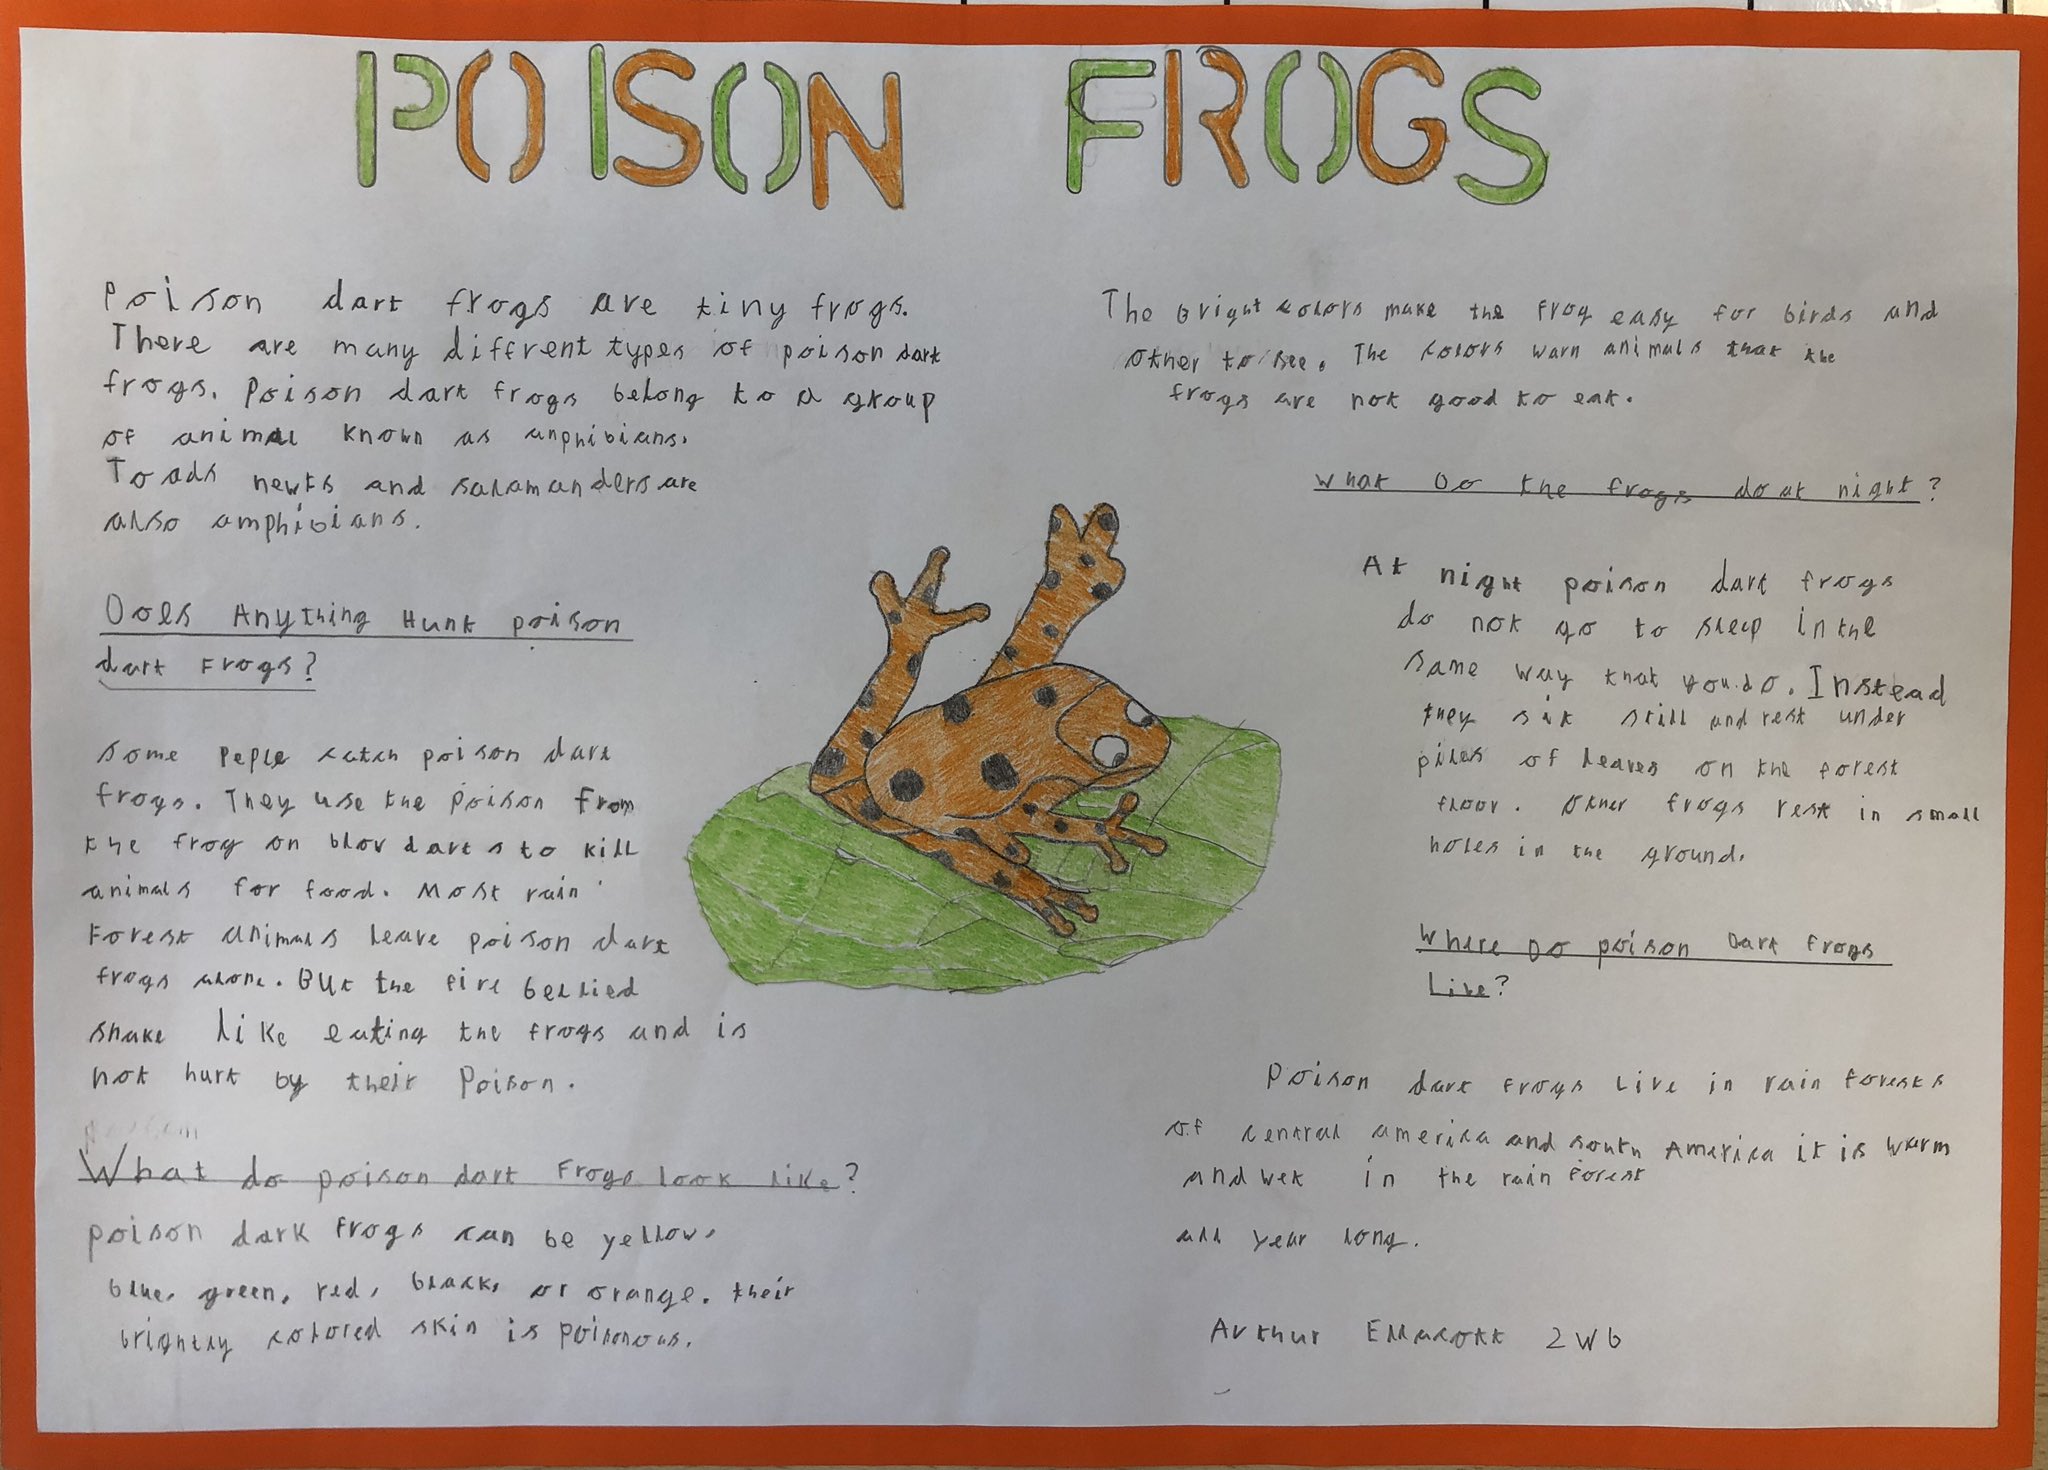 POISON FROGS
Poison dart frogs are tiny frogs.
There are many diffrent types of poison dark
frogs. Poison dart frogs belong to a group
of animal known as anphibians.
Toads newts and salamanders are
also amphibians.
Does Anything Hunt poison
dart Frogs?
Some Peple catch poison dart
frogs. They use the poison from
the frog on blov darts to kill
animals for food. Most rain
Forest animals leave poison dart
frogs alone. But the fire bellied
snake like eating the frogs and is
not hurt by their Poison.
What do poison dart Frogs look like?
poison dark frogs can be yellow,
blue, green, red, black, or orange. their
brightly colored skin is poisonous.
The bright colors make the frog easy for birds and
other to see. The colors warn animals that the
frogs are not good to eat.
What Do the frogs do at night?
At night poison dart frogs
do not go to sleep in the
same way that you do. Instead
they sit still and rest under
piles of leaves on the forest
floor. Other frogs rest in small
holes in the ground.
Where Do poison Dart Frogs
Live?
Poison dart frogs Live in rain forests
of central america and south America it is warm
and wet in the rain forest
all year long.
Arthur 2W6